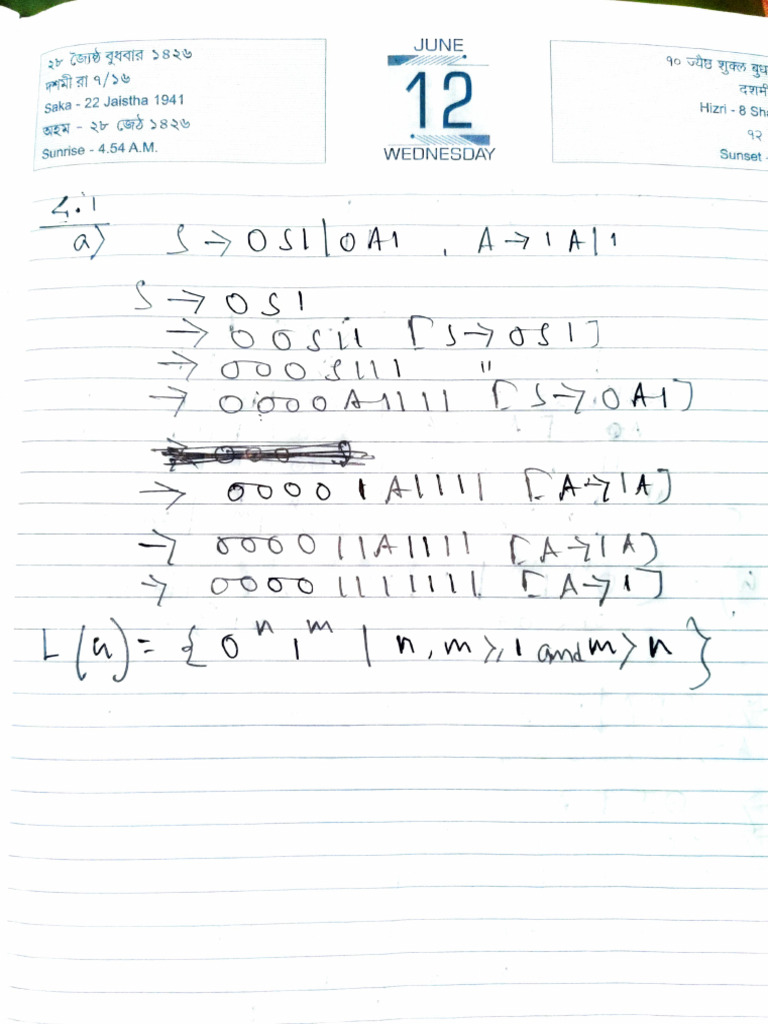 ২৮ জ্যৈষ্ঠ বুধবার ১৪২৬
দশমী রা ৭/১৬
Saka - 22 Jaistha 1941
অহম - ২৮ জেঠ ১৪২৬
Sunrise - 4.54 A.M.
JUNE
12
WEDNESDAY
१० ज्यैष्ठ शुक्ल
दशमी
Hizri - 8
१२
Sunset -
4.1
a) S → 0S1|0A1 , A → 1A|1
S → 0S1
→ 00S11 [S→0S1]
→ 000S111 "
→ 0000A1111 [S→0A1]
→ 00001A1111 [A→1A]
→ 000011A1111 [A→1A]
→ 00001111111 [A→1]
L(G) = {0ⁿ1ᵐ | n, m ≥ 1 and m > n}